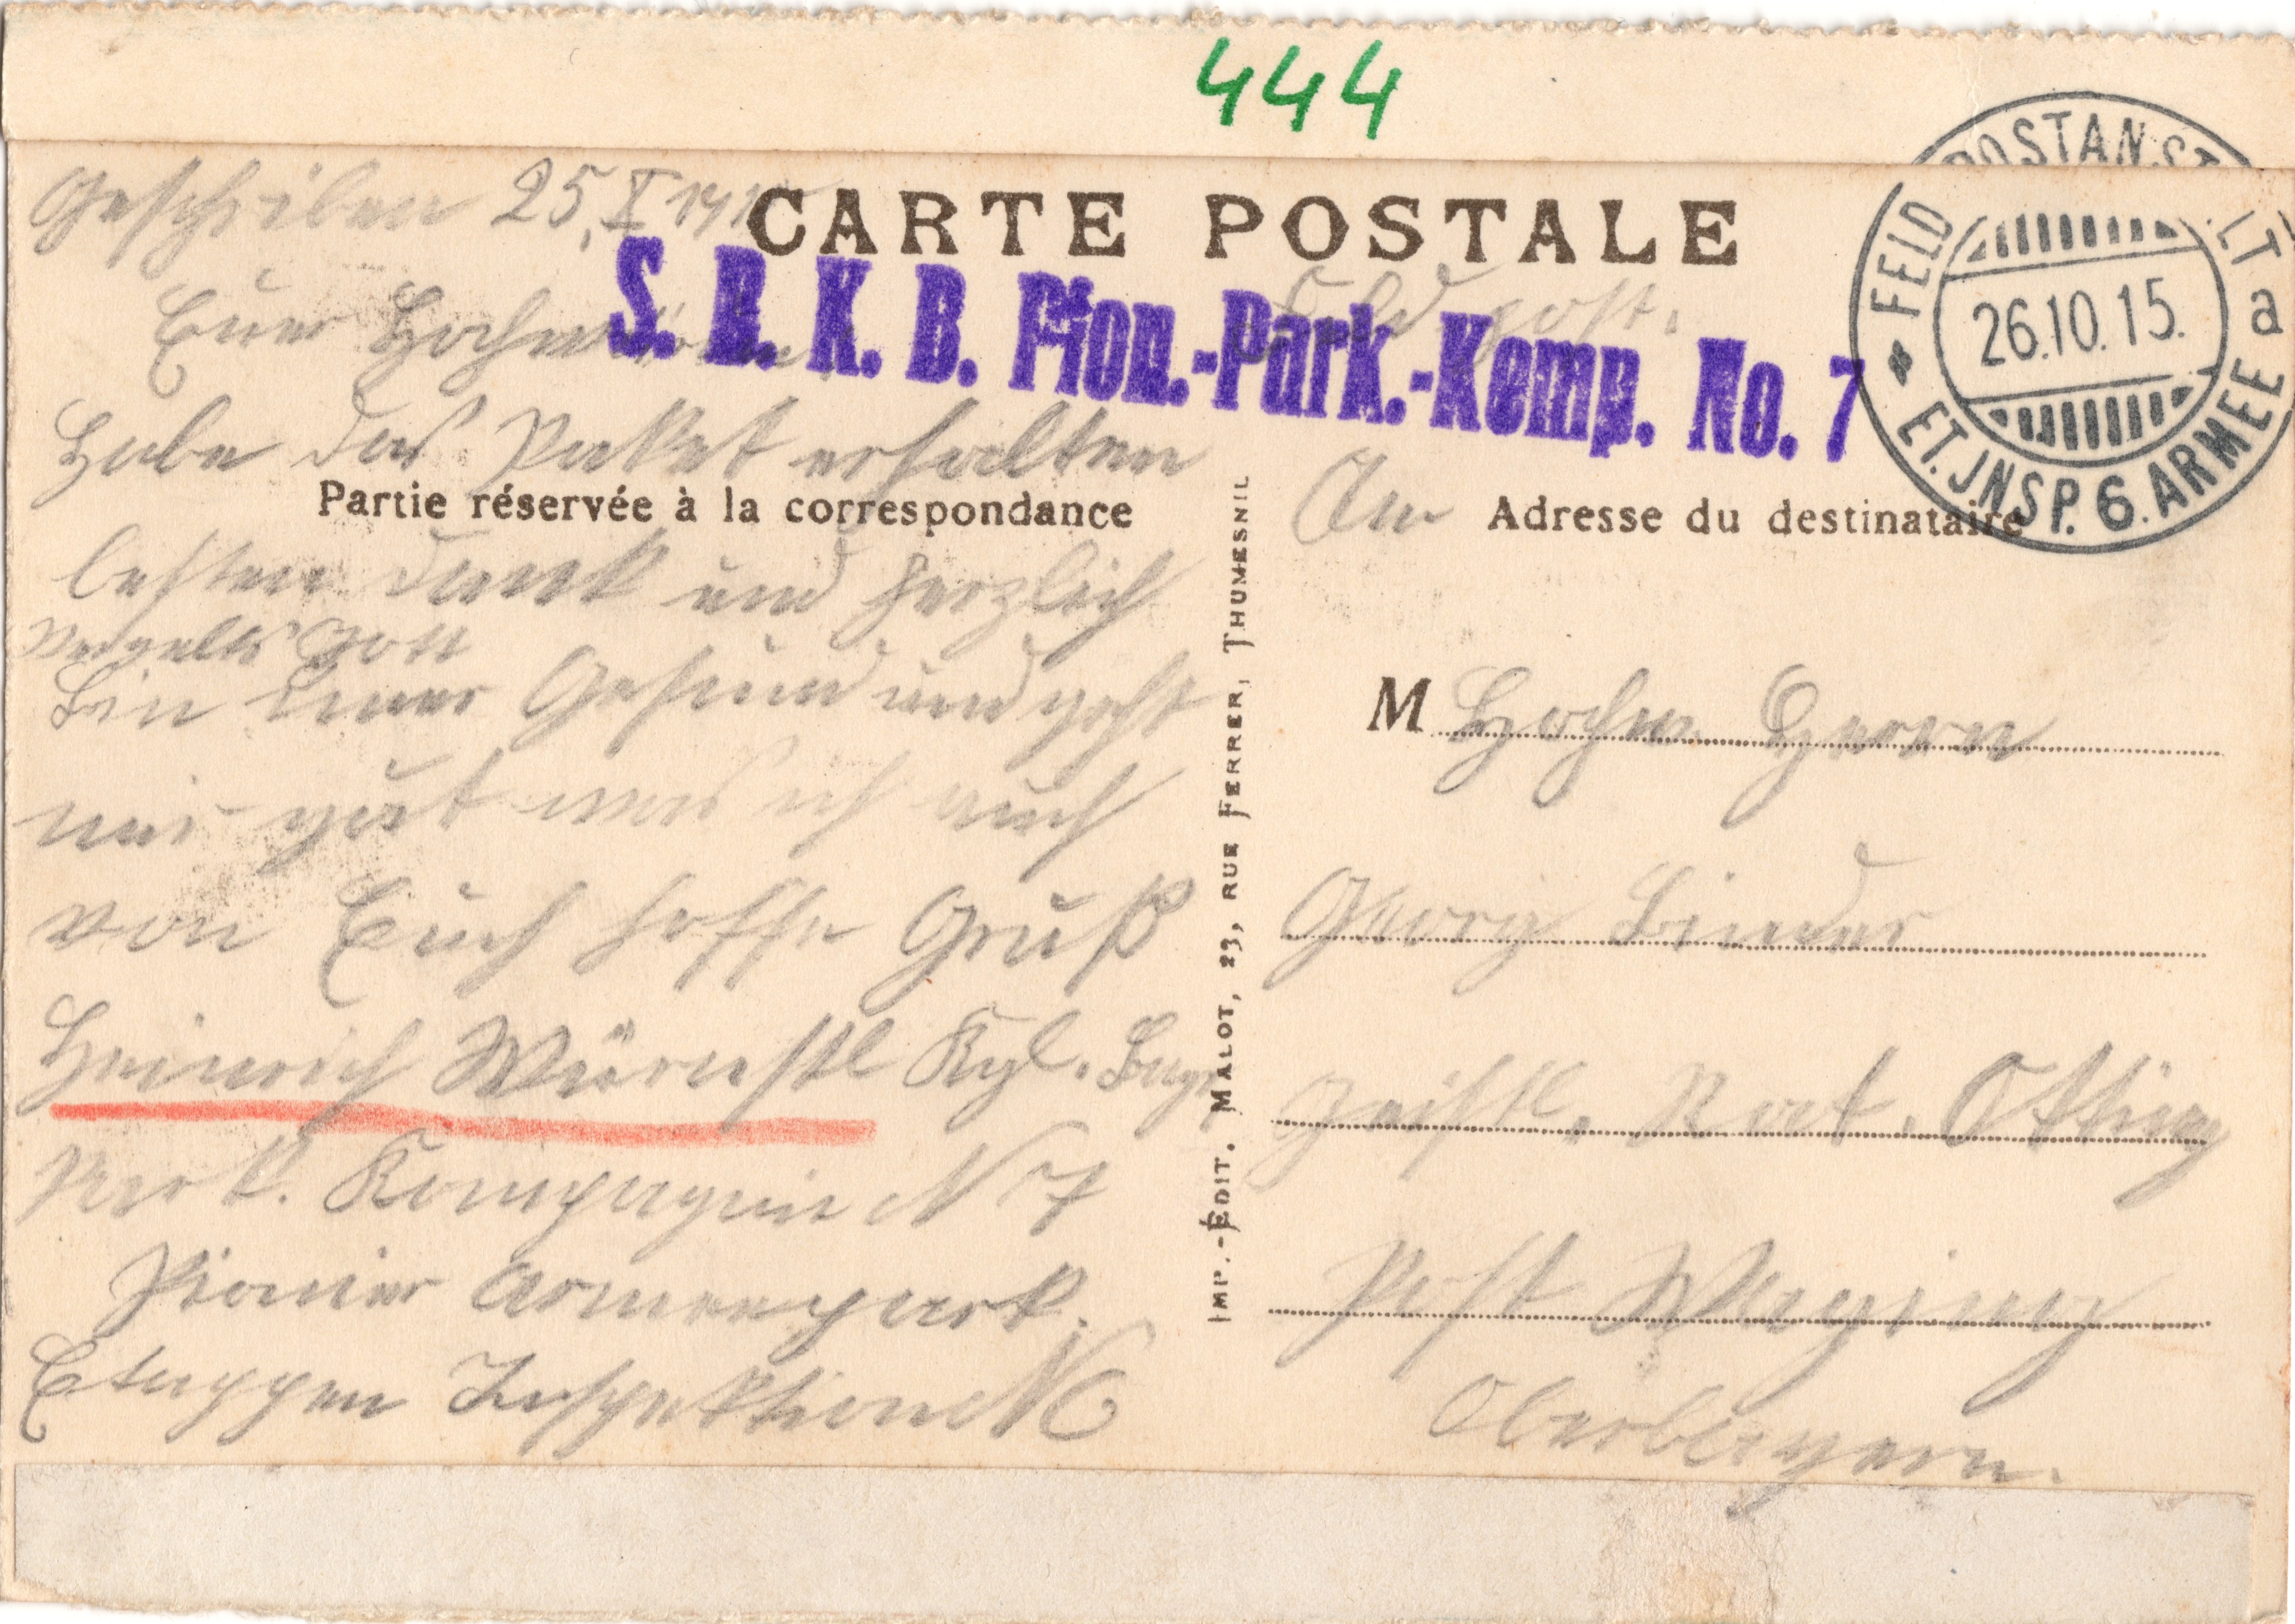 444
Geschriben 25. X 191
CARTE POSTALE
FELDPOSTANSTALT a
26.10.15.
* ET. JNSP. 6. ARMEE
S. B. K. B. Pion.-Park.-Komp. No. 7
Feldpost.
Euer Hochwürden
Habe das Paket erhalten
Partie réservée à la correspondance
besten Dank und herzlich
Vergelts Gott
Bin imer Gesund und geht
mir gut was ich auch
von Euch hoffe Gruß
Heinrich Würnstl Kgl. Bayr
Park. Kompagnie N 7
Pionier Armeepark.
Etappen Inspektion N 6
IMP.-EDIT. MALOT, 23, RUE FERRER, THUMESNIL
An
Adresse du destinataire
M Hochw. Herrn
Georg Binder
Geistl. Rat. Otting
Post Waging
Oberbayern.